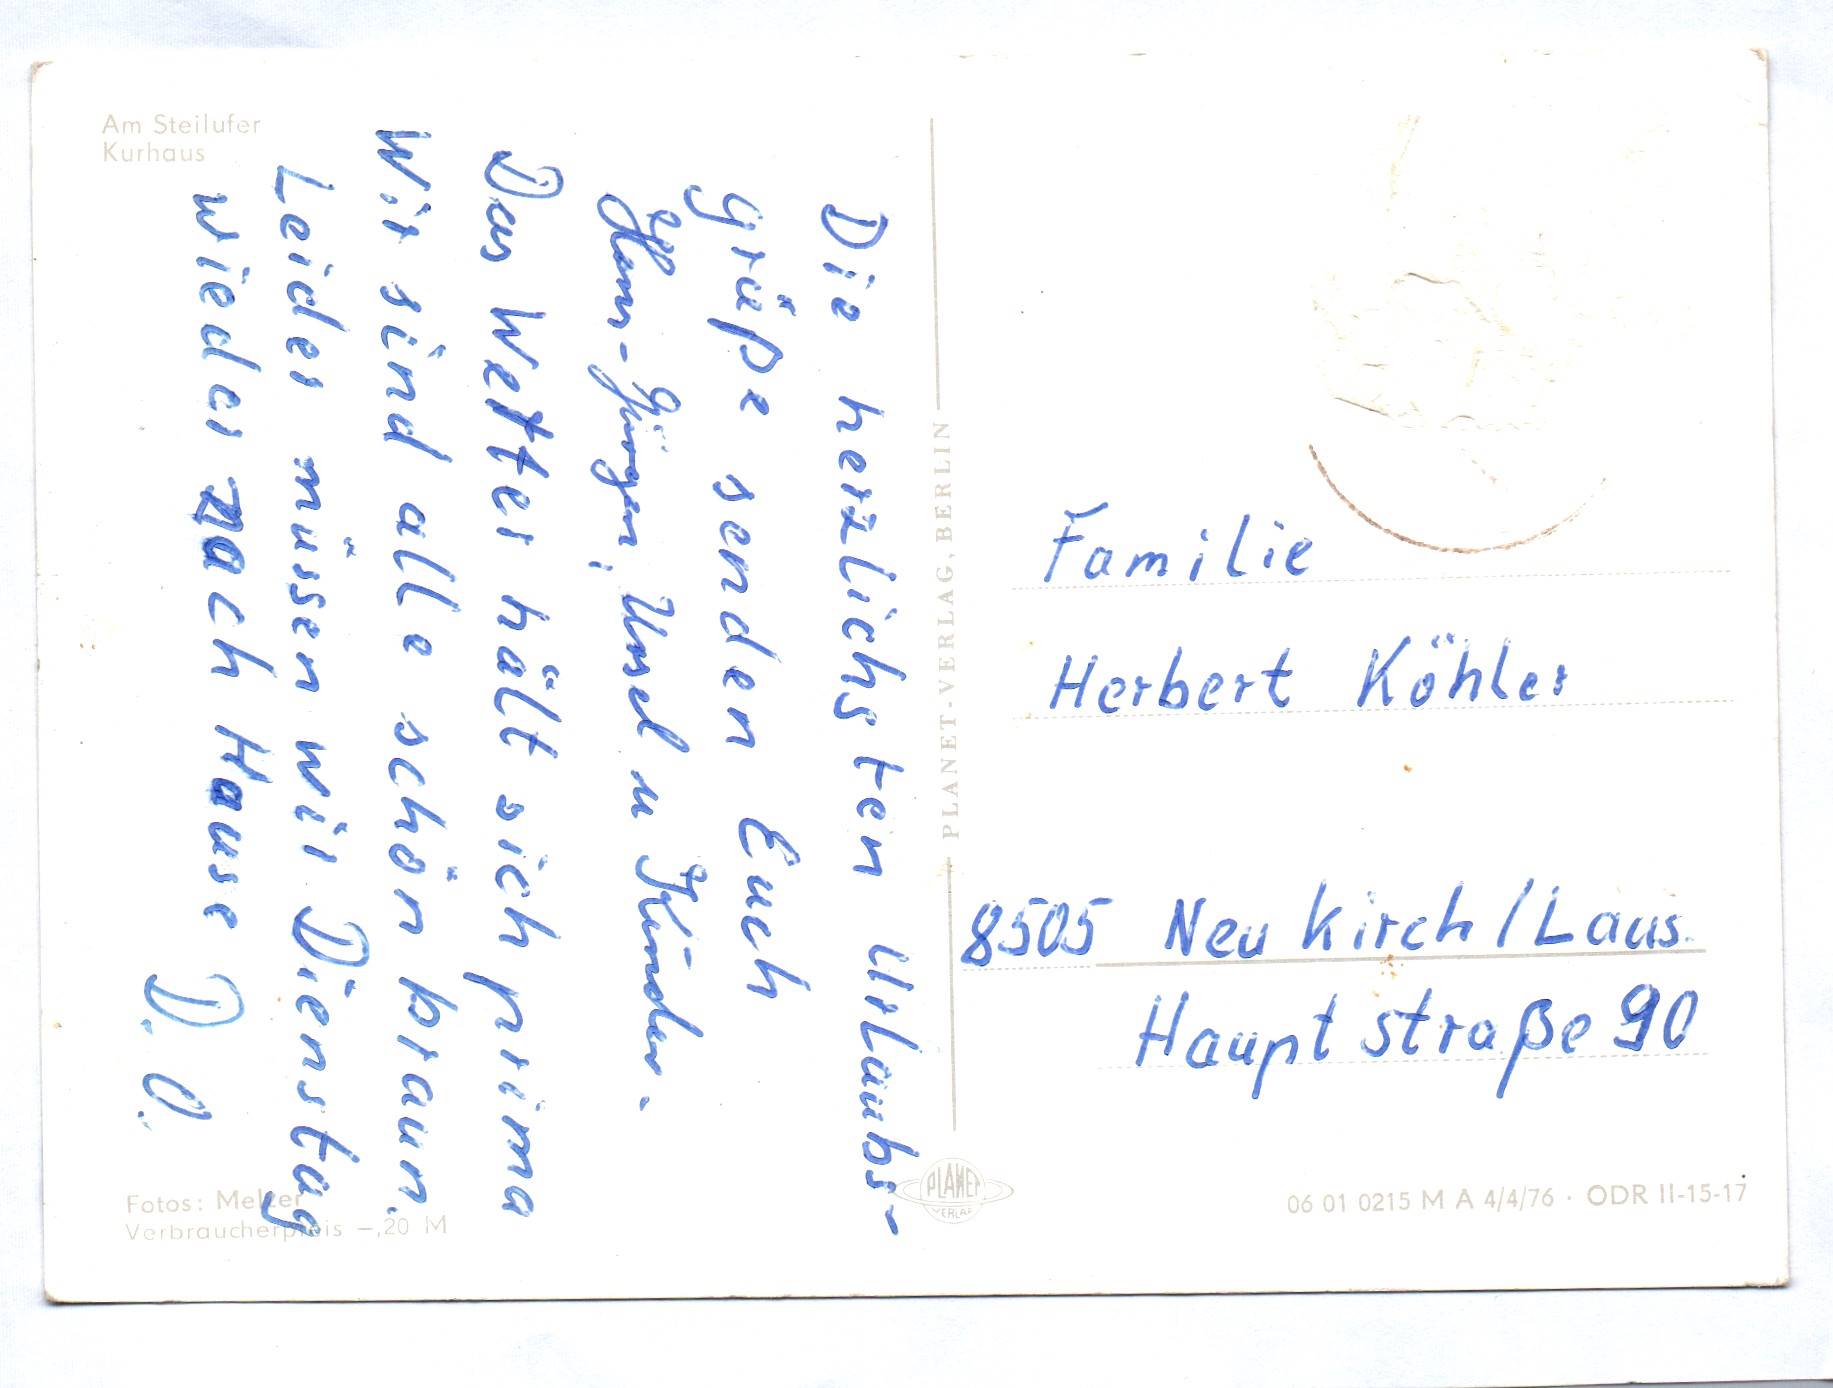 Am Steilufer
Kurhaus
Die herzlichsten Urlaubs-
grüße senden Euch
Hans-Jürgen, Ursel u Kinder.
Das Wetter hält sich prima
Wir sind alle schön braun.
Leider müssen wir Dienstag
wieder nach Hause D. O.
Fotos: Melzer
Verbraucherpreis –,20 M
PLANET-VERLAG, BERLIN
PLANET
VERLAG
Familie
Herbert Köhler
8505 Neukirch/Laus.
Hauptstraße 90
06 01 0215 M A 4/4/76 · ODR II-15-17